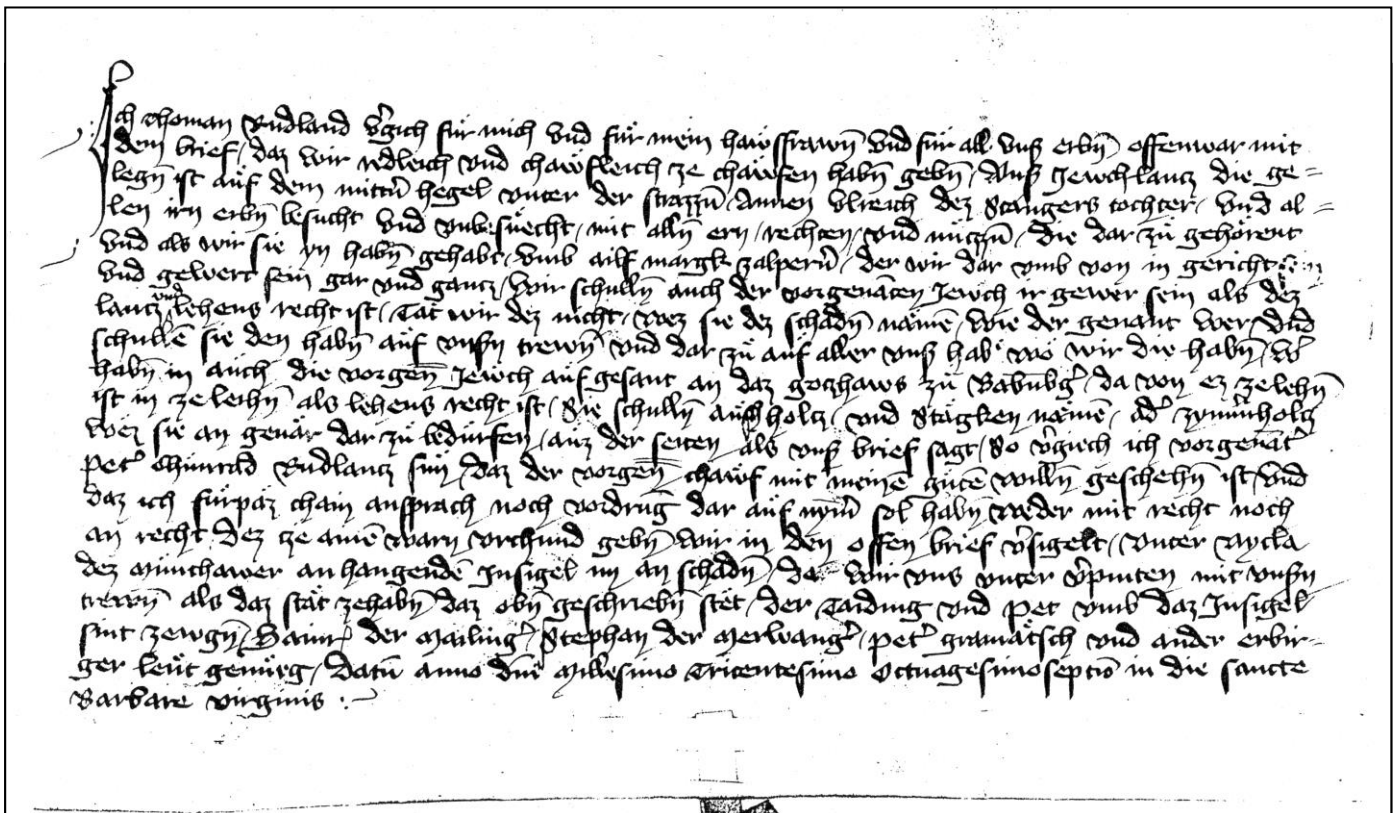 Ich Thoman Rudland vgich für mich vnd für mein hawsfrawn vnd für all vnß erbn offenwar mit
dem brief, daz wir redleich vnd chawfleich ze chawfen habn gebn, Vnß Jewchlantz die ge=
legn ist auf dem mittern hegel vnter der strazzn, Annen Vlreich dez Stangers tochter, vnd al=
len irn erbn besucht vnd vnbesuecht, mit alln ern, rechten, vnd nutzzn, die dar zu gehörent
vnd als wir sie yn habn gehabt, vmb ailf margk zalpern, der wir dar vmb von in gericht sein
vnd gewert sein gar vnd gantz, Wir schulln auch der vorgenanten Jewch ir gewer sein als dez
lantz vnd lehens recht ist, Tät wir dez nicht, wez sie dez schadn nämē, wie der genant wer, vnd
schullē sie den habn auf vnsn trewn vnd dar zu auf aller vnß hab, wo wir die habn, Wir
habn in auch die vorgen Jewch auf gesant an daz gotzhaws zu Babnbg, da von ez ze lehn
ist in ze leihn als lehens recht ist, Sie schulln auch holtz, vnd Stägken nämē, ad zymmholtz
wez sie an genär dar zu bedürfen, auz der seiten als vnß brief sagt, So vgiech ich vorgenāt
Pet Chunrad Rudlantz sun, daz der vorgen chawf mit meinē gutē willn geschehn ist, vnd
daz ich fürpaz chain ansprach noch vordrūg dar auf nymm sol habn weder mit recht noch
an recht, Dez ze ainē warn vrchund gebn wir in den offen brief vsigelt, vnter Nycla
dez Münchawer anhangendē Insigel im an schadn, da wir vns vnter vpinten mit vnsn
trewn als daz stät ze habn daz obn geschriebn stet, der taiding vnd pet vmb daz Insigel
sint zewgn, Hainr der Mailing, Stephan der Merwang, Pet gramätsch vnd ander erbir=
ger lewt genug, Datū anno dnī Millesimo Tricentesimo Octuagesimoseptīo in die sancte
Barbare virginis :~